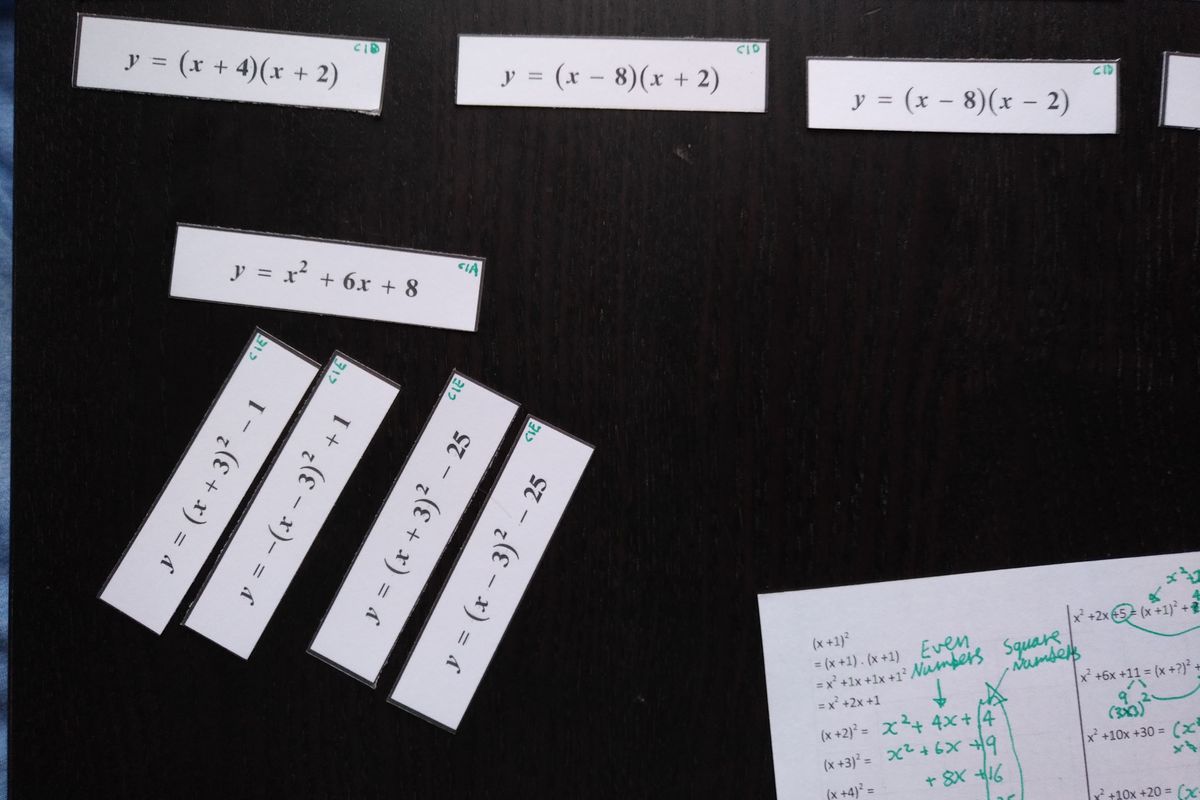 y = (x + 4)(x + 2)
C1D
y = (x − 8)(x + 2)
C1D
y = (x − 8)(x − 2)
C1D
y = x² + 6x + 8
C1A
y = (x + 3)² − 1
C1E
y = −(x − 3)² + 1
C1E
y = (x + 3)² − 25
C1E
y = (x − 3)² − 25
C1E
(x +1)²
= (x +1) . (x +1)
= x² +1x +1x +1²
= x² +2x +1
Even Numbers
Square Numbers
(x +2)² = x² + 4x + 4
(x +3)² = x² + 6x + 9
+ 8x + 16
(x +4)² =
x² +2x +5 = (x +1)² +
x² +6x +11 = (x +?)² +
9 2
(3x3)
x² +10x +30 = (x
x² +10x +20 = (x